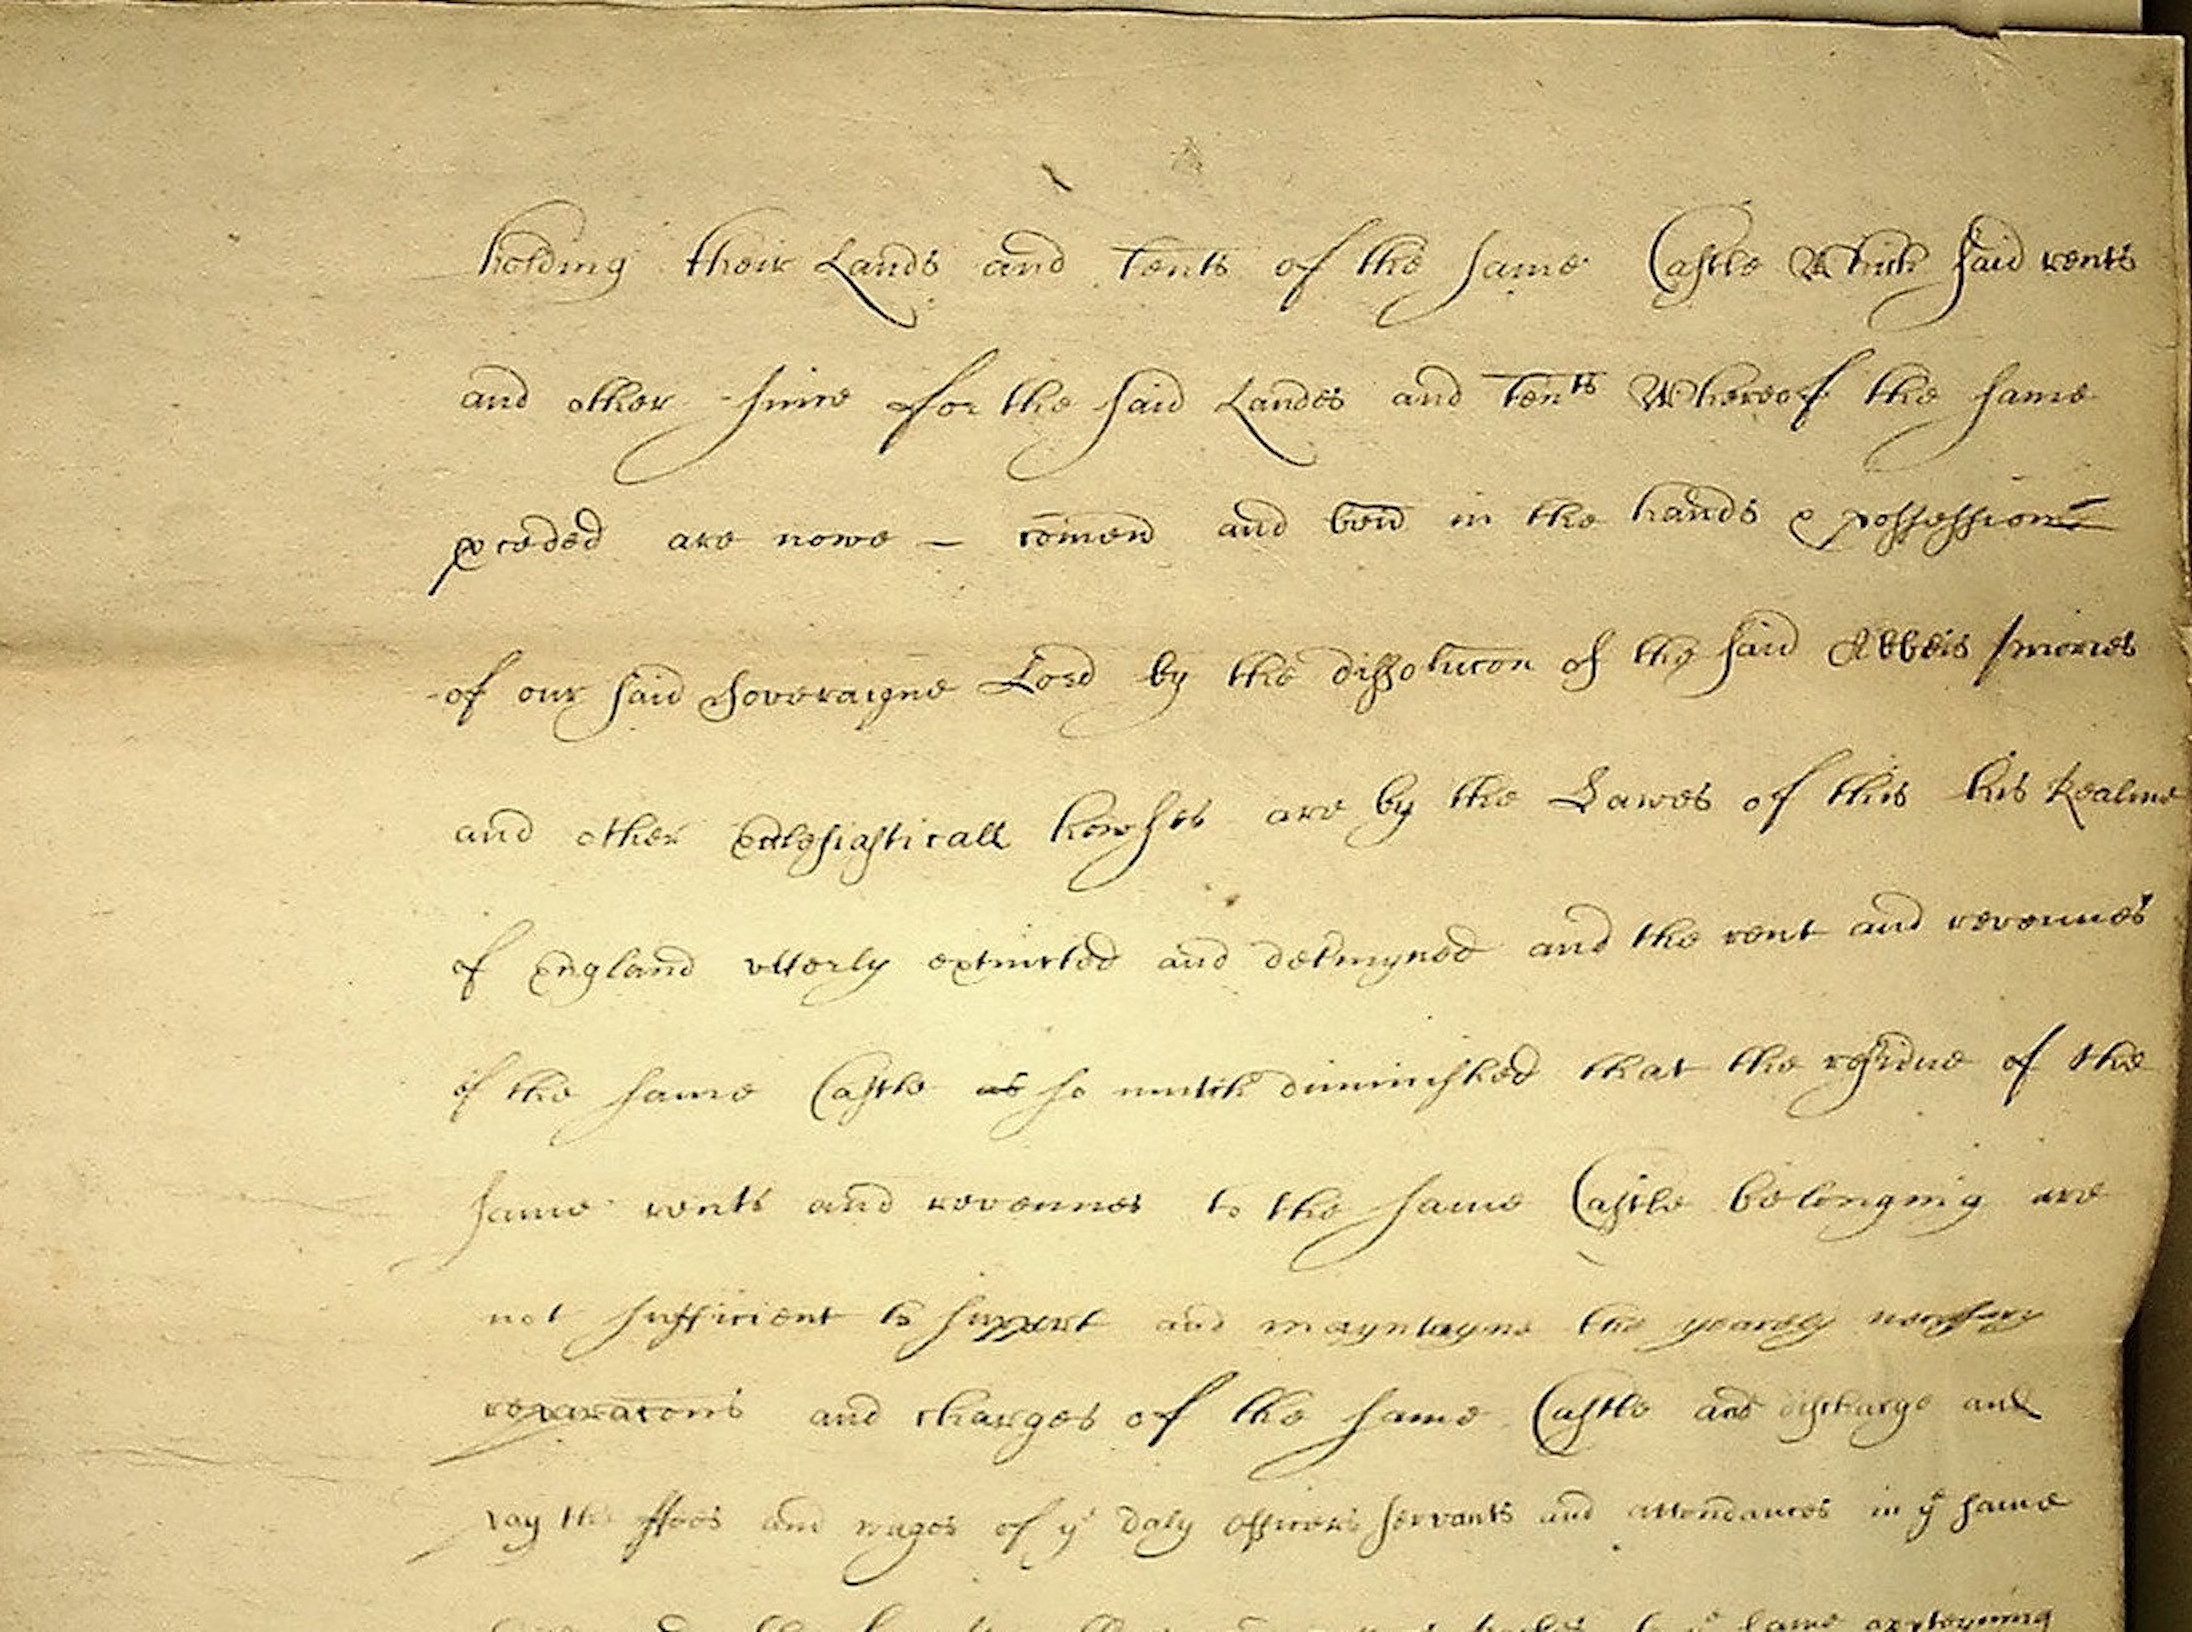 holding their Lands and Tents of the same Castle Which said rents
and other suite for the said Landes and Tents Whereof the same
proceded are nowe – comen and ben in the hands & possessions
of our said Soveraigne Lord by the dissolucon of the said Abbeis priories
and other Ecclesiasticall howses are by the Lawes of this his Realme
of England utterly extincted and detmyned and the rent and revenues
of the same Castle as so mutch diminished that the residue of the
same rents and revennes to the same Castle belonging are
not sufficient to support and mayntayne the yearely necessary
reparacons and charges of the same Castle and discharge and
pay the ffees and wages of ye daly officers servants and attendances in ye same
same apptenning